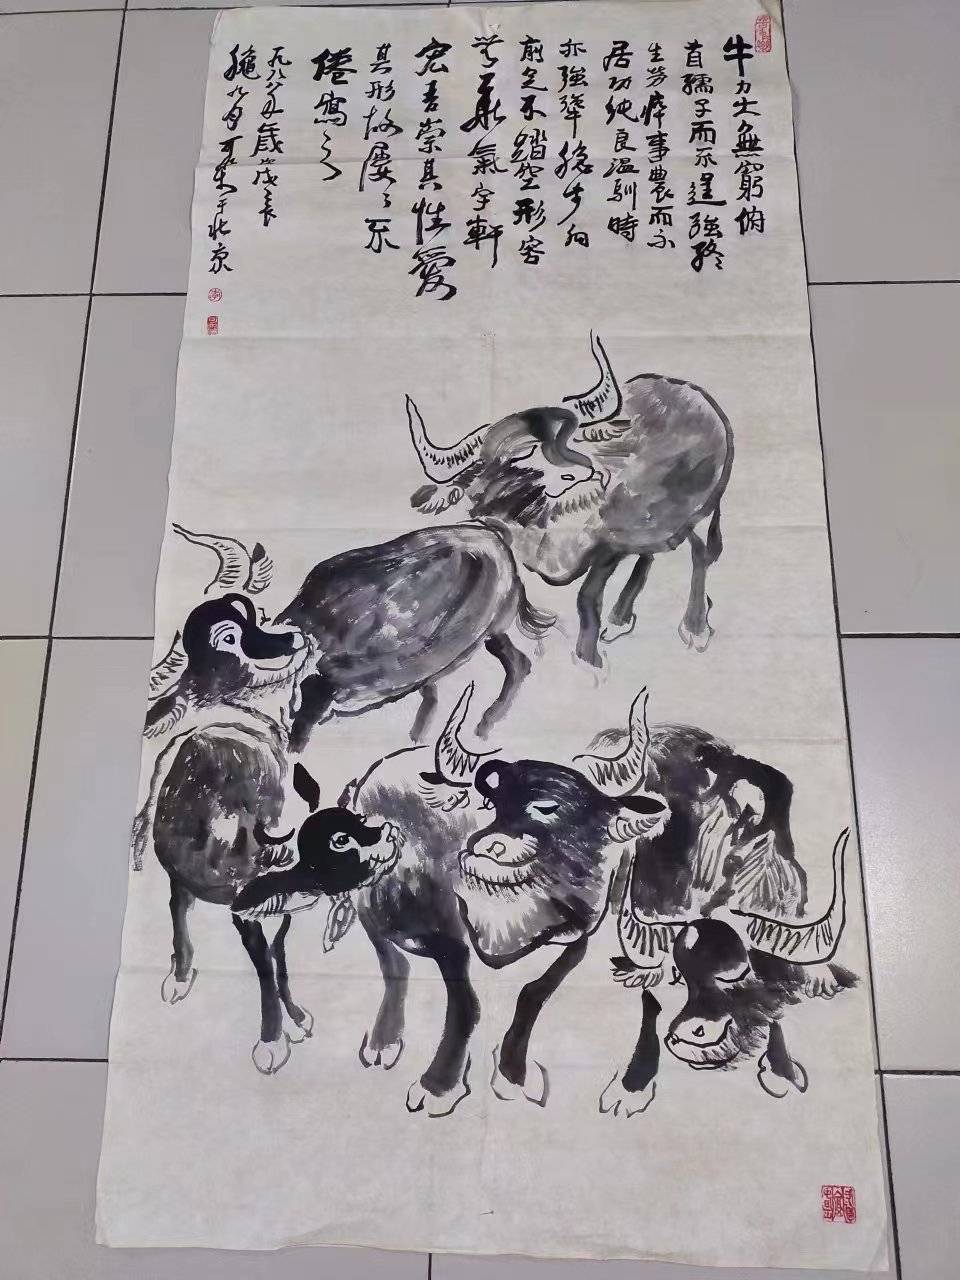 牛力大無窮俯
首孺子而不逞強終
生勞悴事農而不
居功純良溫馴時
亦強犟穩步向
前足不踏空形容
無華氣宇軒
宏吾崇其性愛
其形故屢屢不
倦寫之
一九八八年歲戊辰
可染于北京